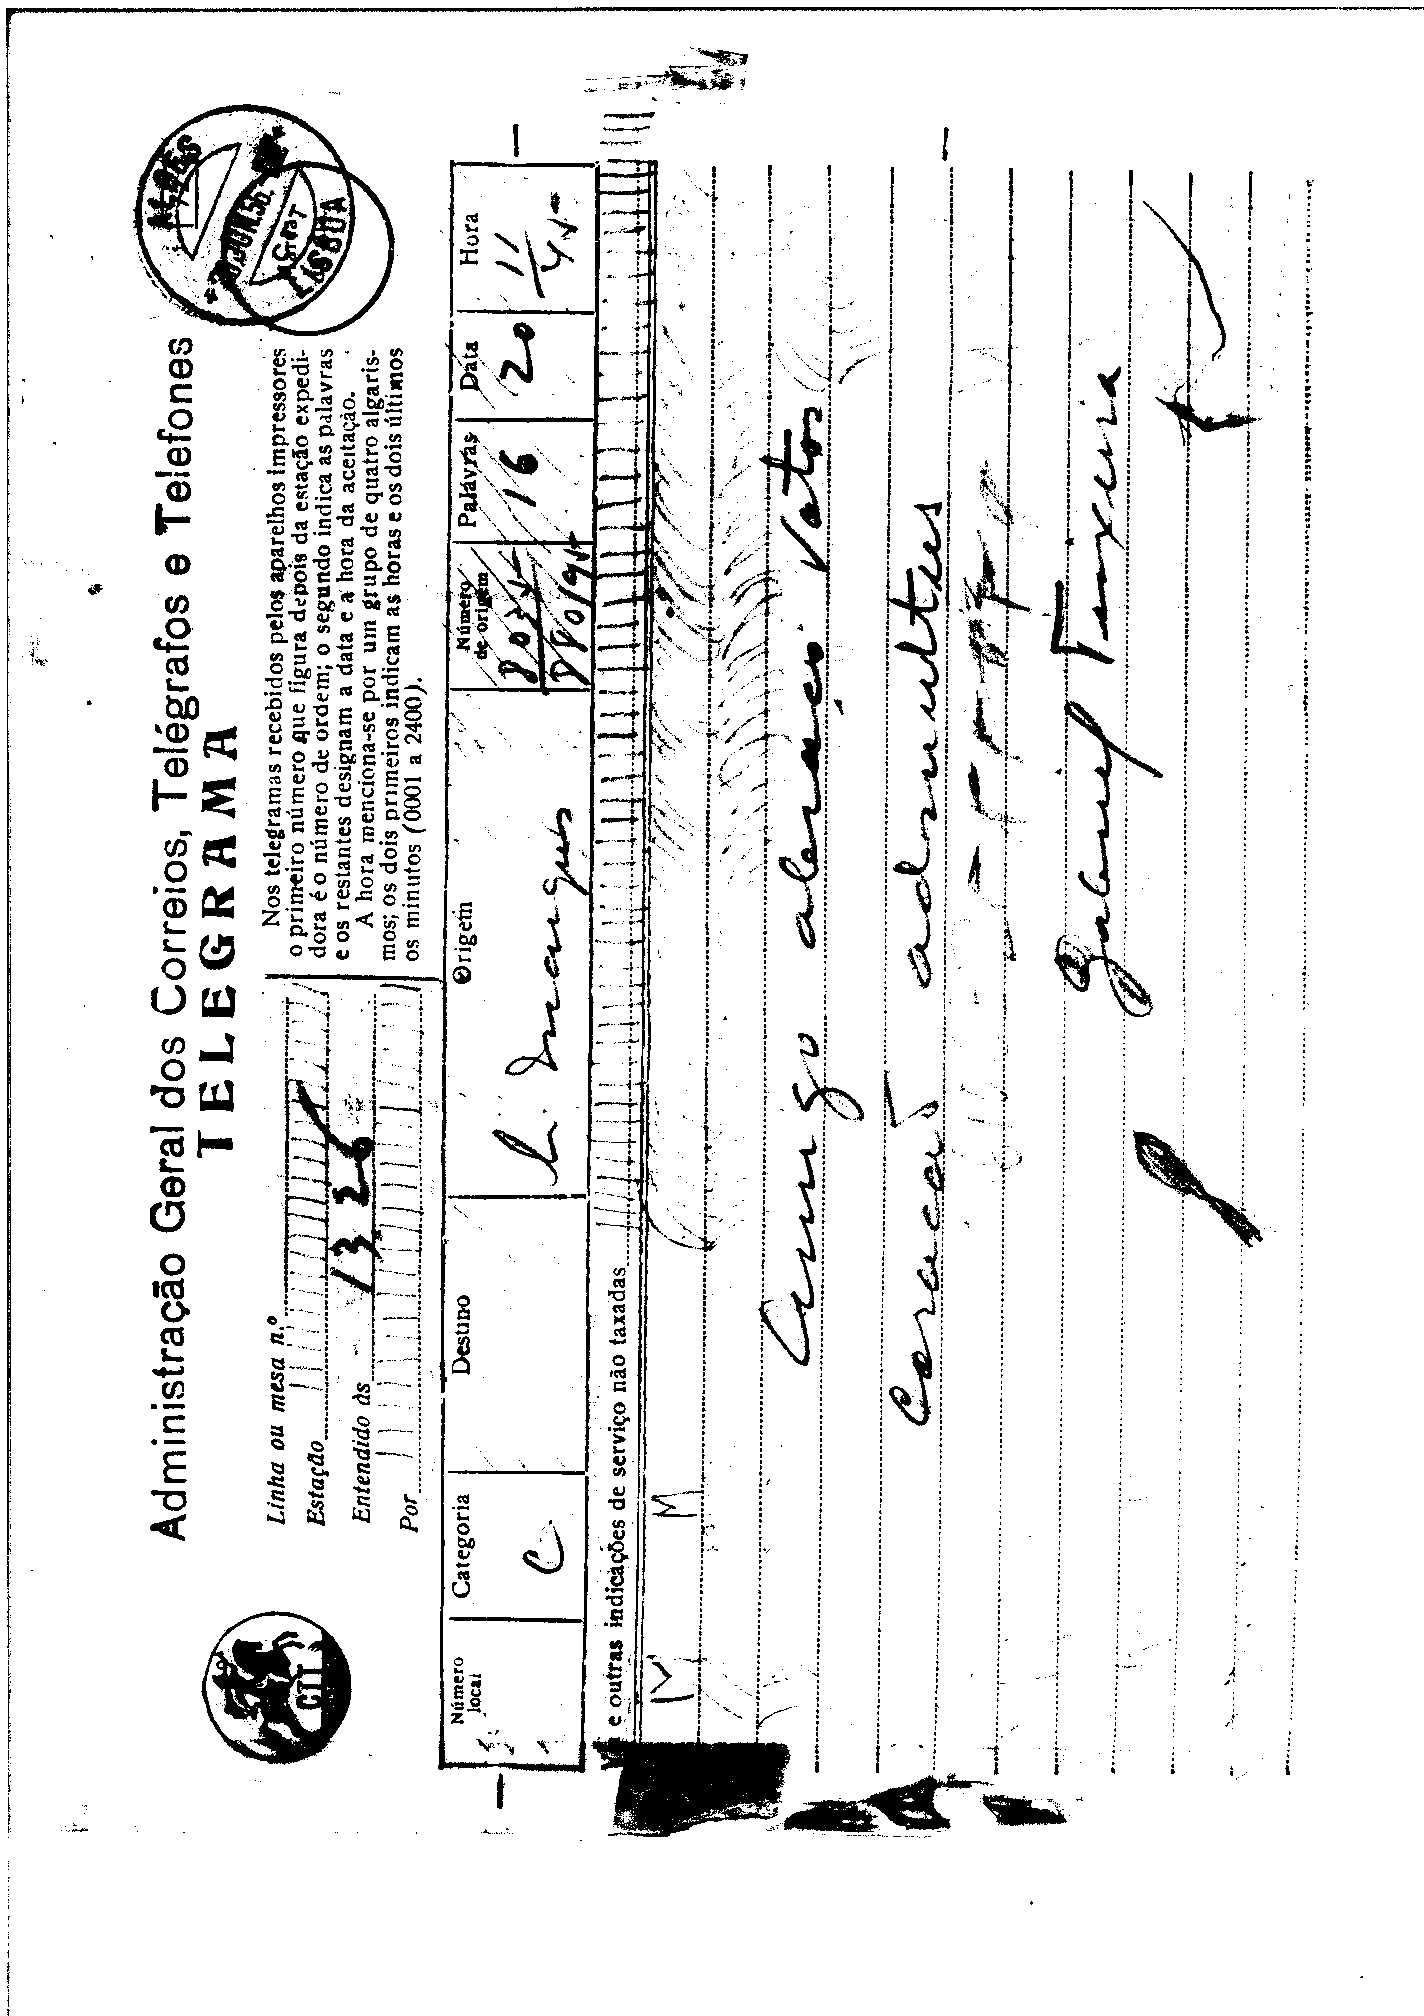 Administração Geral dos Correios, Telégrafos e Telefones
TELEGRAMA
CTT
Linha ou mesa n.º
Estação
Entendido às 13 26
Por
Nos telegramas recebidos pelos aparelhos impressores
o primeiro número que figura depois da estação expedi-
dora é o número de ordem; o segundo indica as palavras
e os restantes designam a data e a hora da aceitação.
A hora menciona-se por um grupo de quatro algaris-
mos; os dois primeiros indicam as horas e os dois últimos
os minutos (0001 a 2400).
LISBOA
Número local
Categoria
Destino
Origem
Número de origem
Palavras
Data
Hora
C
16
20
11
e outras indicações de serviço não taxadas
M M
Amigo abraço Votos
Gabriel Teixeira